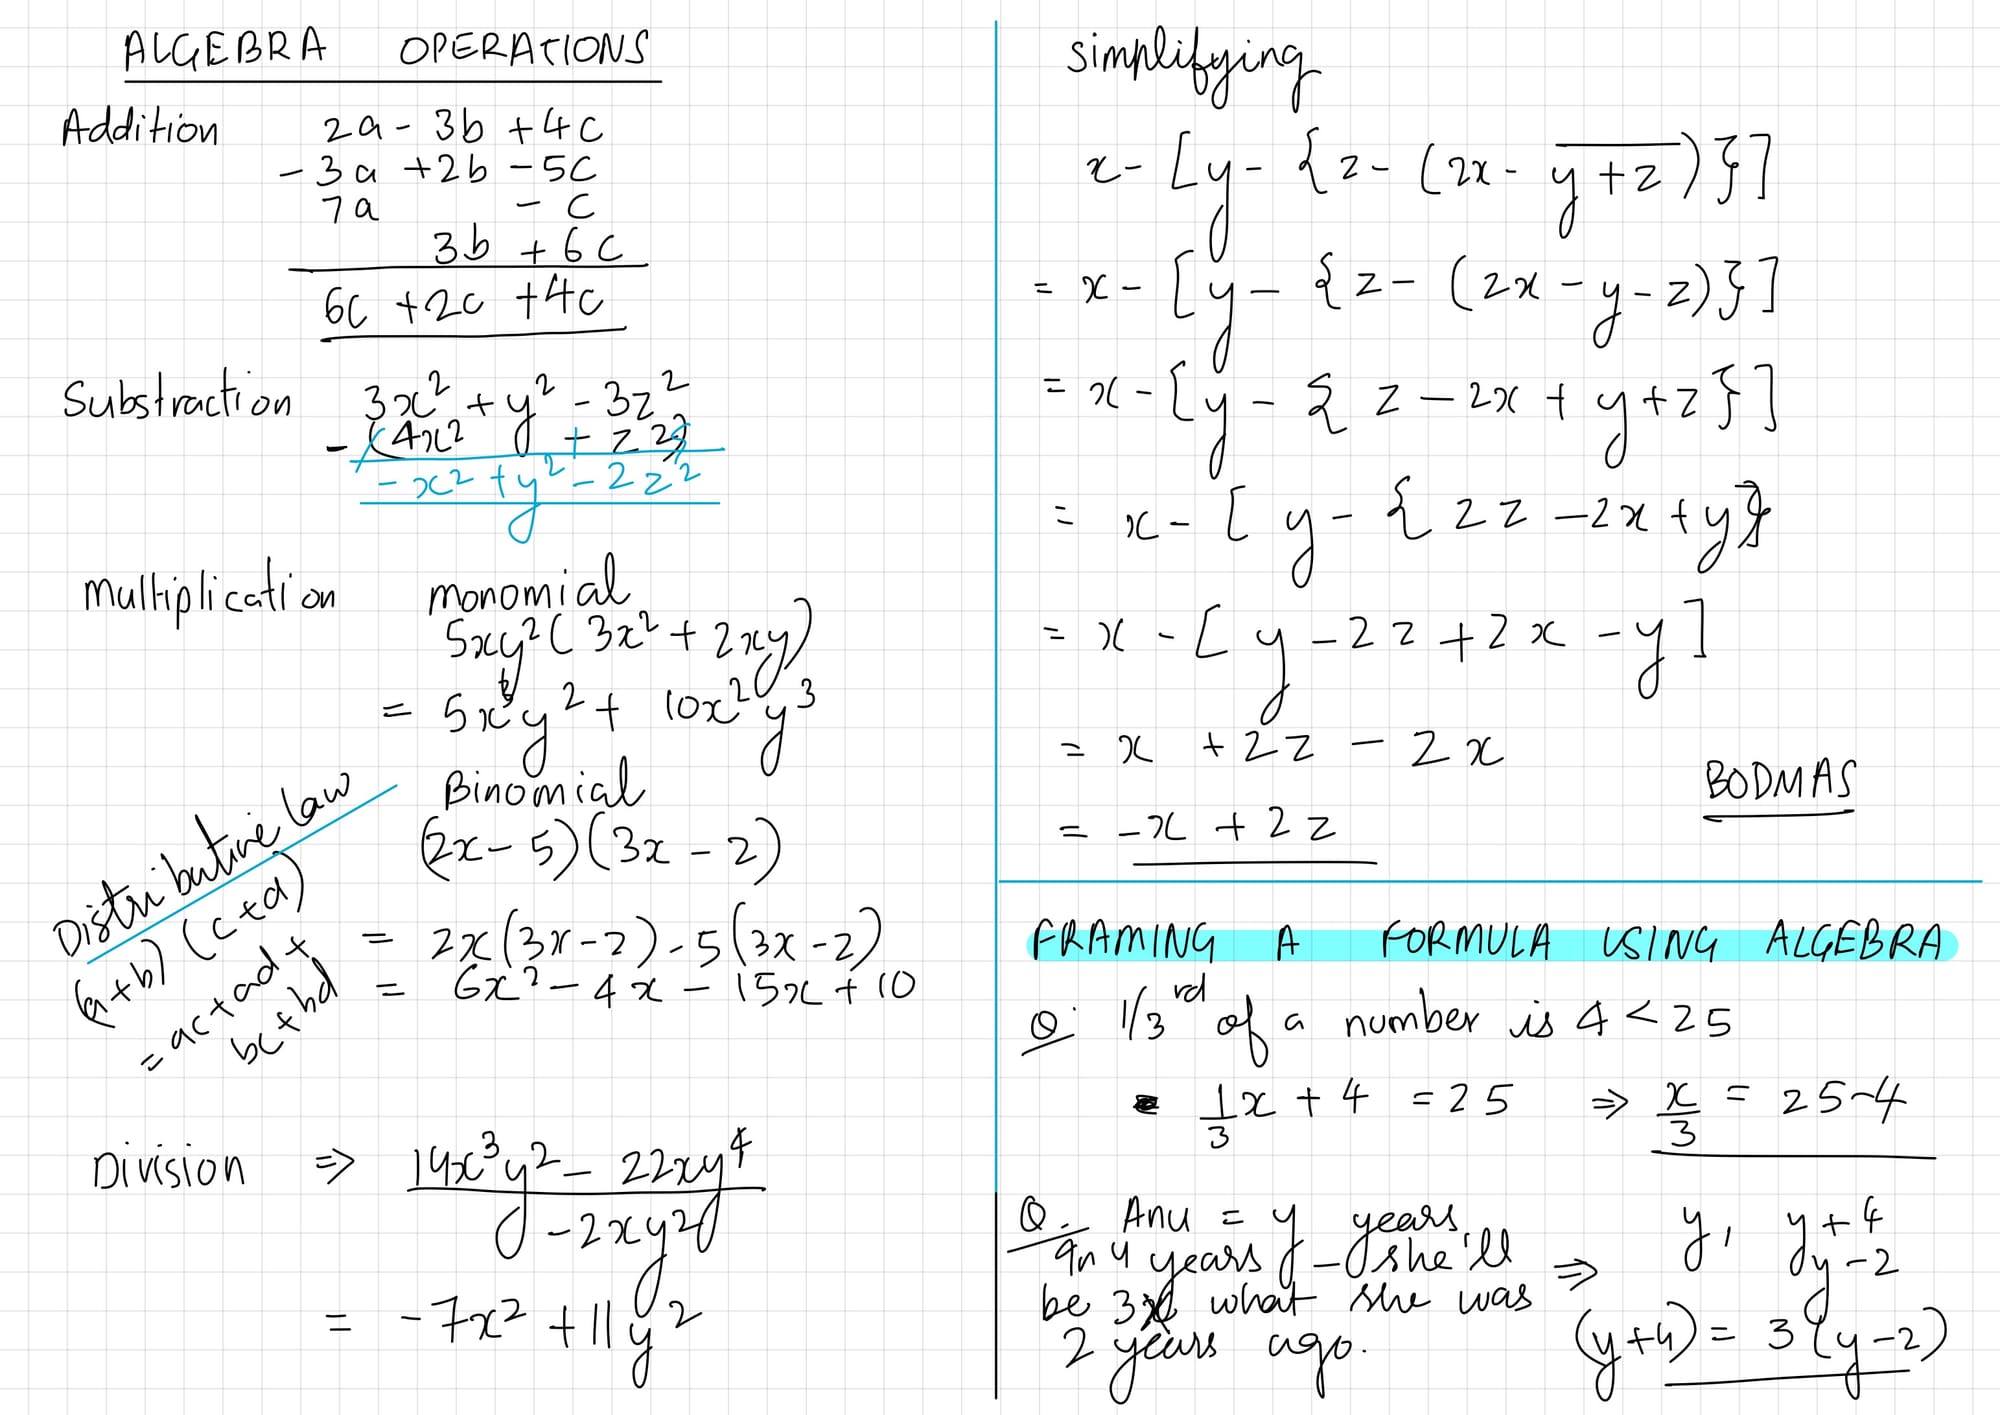 ALGEBRA OPERATIONS
Addition 2a - 3b + 4c
- 3a + 2b - 5c
7a - c
3b + 6c
6c + 2c + 4c
Substraction 3x² + y² - 3z²
- (4x² + z²)
- x² + y² - 2z²
Multiplication monomial
5xy²(3x² + 2xy)
= 5x³y² + 10x²y³
Binomial
(2x - 5)(3x - 2)
= 2x(3x - 2) - 5(3x - 2)
= 6x² - 4x - 15x + 10
Distributive law
(a+b)(c+d)
= ac + ad +
bc + bd
Division ⇒ 14x³y² - 22xy⁴
-2xy²
= -7x² + 11y²
simplifying
x - [y - {z - (2x - y+z)}]
= x - [y - {z - (2x - y - z)}]
= x - [y - {z - 2x + y + z}]
= x - [y - {2z - 2x + y}]
= x - [y - 2z + 2x - y]
= x + 2z - 2x
= -x + 2z
BODMAS
FRAMING A FORMULA USING ALGEBRA
Q. 1/3rd of a number is 4 < 25
1/3 x + 4 = 25 ⇒ x/3 = 25-4
Q. Anu = y years
In 4 years - she'll
be 3x what she was
2 years ago.
⇒ y, y+4
y-2
(y+4) = 3(y-2)